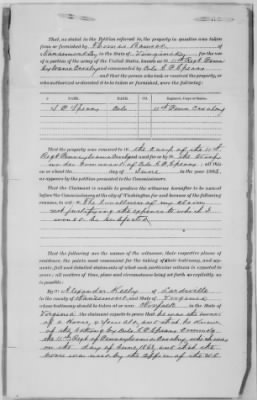 That, as stated in the Petition referred to, the property in question was taken
from or furnished by Thomas Runner of
Nansemond Co., in the State of Virginia, for the use
of a portion of the army of the United States, known as 11th Regt Penn-
sylvania Cavalry and commanded by Colo. S P Spears
and that the person who took or received the property, or
who authorized or directed it to be taken or furnished, were the following:
NAME. RANK. CO. Regiment, Corps or Station.
S. P. Spears Colo. 11th Penna Cavalry
That the property was removed to the camp of the 11th
Regt Pennsylvania Cavalry and for use by the troop
under Command of Colo S P Spears, all this
on or about the day of June in the year 1863,
as appears by the petition presented to the Commissioners.
That the Claimant is unable to produce the witnesses hereafter to be named
before the Commissioners at the city of Washington for and because of the following
reasons, to wit: The smallness of my claim
not justifying the expense to which I
would be subjected
That the following are the names of the witnesses, their respective places of
residence, the points most convenient for the taking of their testimony, and sep-
arate, full and detailed statements of what each particular witness is expected to
prove; all matters of time, place and circumstance being set forth as explicitly as
is possible.
By 1: Alexander Kelly of Carsville
in the county of Nansemond, and State of Virginia
whose testimony should be taken at or near Suffolk in the State of
Virginia, the claimant expects to prove that he was the owner
of a Horse, &
of the taking by Colo S P Spears
the 11th Regt of Pennsylvania Cavalry, which was
on the day of June, 1863, and that the
horse was used by the